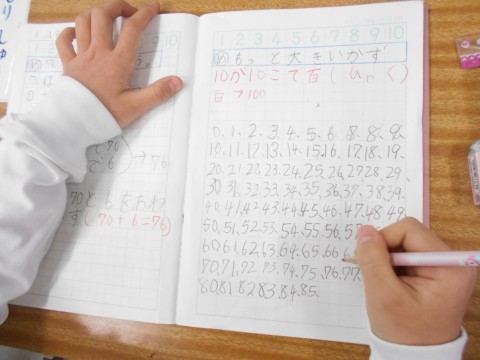 1 2 3 4 5 6 7 8 9 10
め もっと大きいかず
10が10こで百(ひゃく)
百→100
0、1、2、3、4、5、6、8、8、9、
10、11、12、13、14、15、16、17、18、19、
20、21、22、23、24、25、26、27、28、29、
30、31、32、33、34、35、36、37、38、39、
40、41、42、43、44、45、46、47、48、49
50、51、52、53、54、55、56、57
60、61、62、63、64、65、66
70、71、72、73、74、75、76、77
80、81、82、83、84、85、
70
で6 →76
70と6をあわ
す(70+6=76)